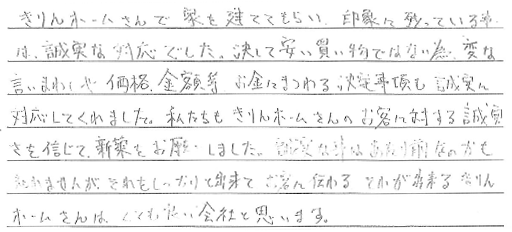 きりんホームさんで家を建ててもらい、印象に残っている事
は、誠実な対応でした。決して安い買い物ではない為、変な
言いまわしや価格、金額等 お金にまつわる決定事項も誠実に
対応してくれました。私たちもきりんホームさんのお客に対する誠実
さを信じて、新築をお願いしました。誠実な事はあたり前なのかも
知れませんが、それをしっかりと出来て お客に伝わる それが出来るきりん
ホームさんは、とても良い会社と思います。